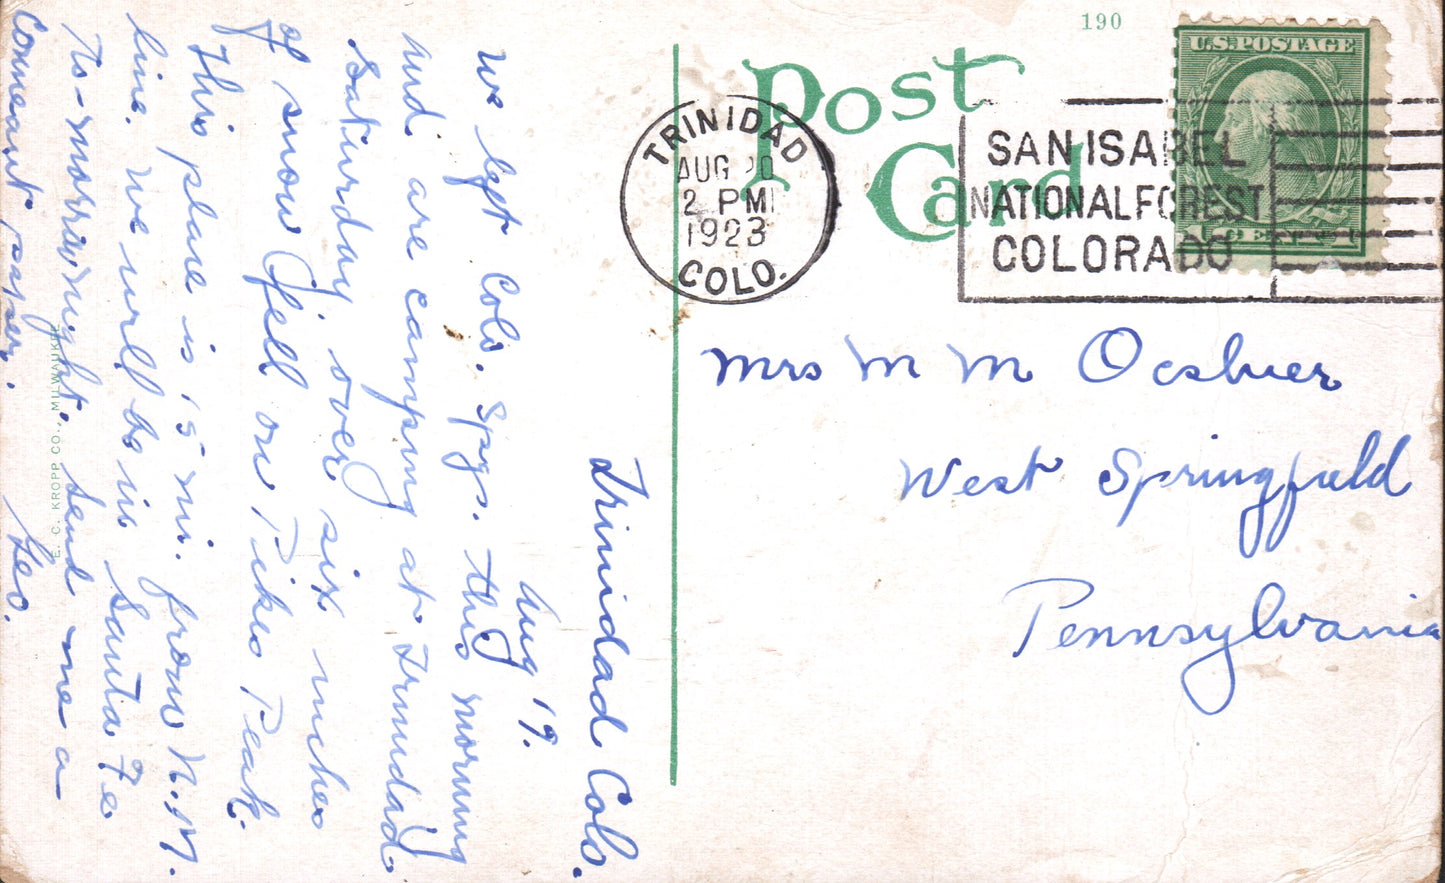 190
Post
Card
U.S. POSTAGE
1 CENT 1
TRINIDAD
AUG 20
2 PM
1923
COLO.
SAN ISABEL
NATIONAL FOREST
COLORADO
Trinidad Colo.
Aug 19.
We left Colo. Spgs. this morning
and are camping at Trinidad
Saturday, over six inches
of snow fell on Pikes Peak.
This place is 15 mi. from N.M.
line. We will be in Santa Fe
to-morrow night. Send me a
Conneaut paper. Geo.
Mrs M M
West Springfield
Pennsylvania
E. C. KROPP CO., MILWAUKEE